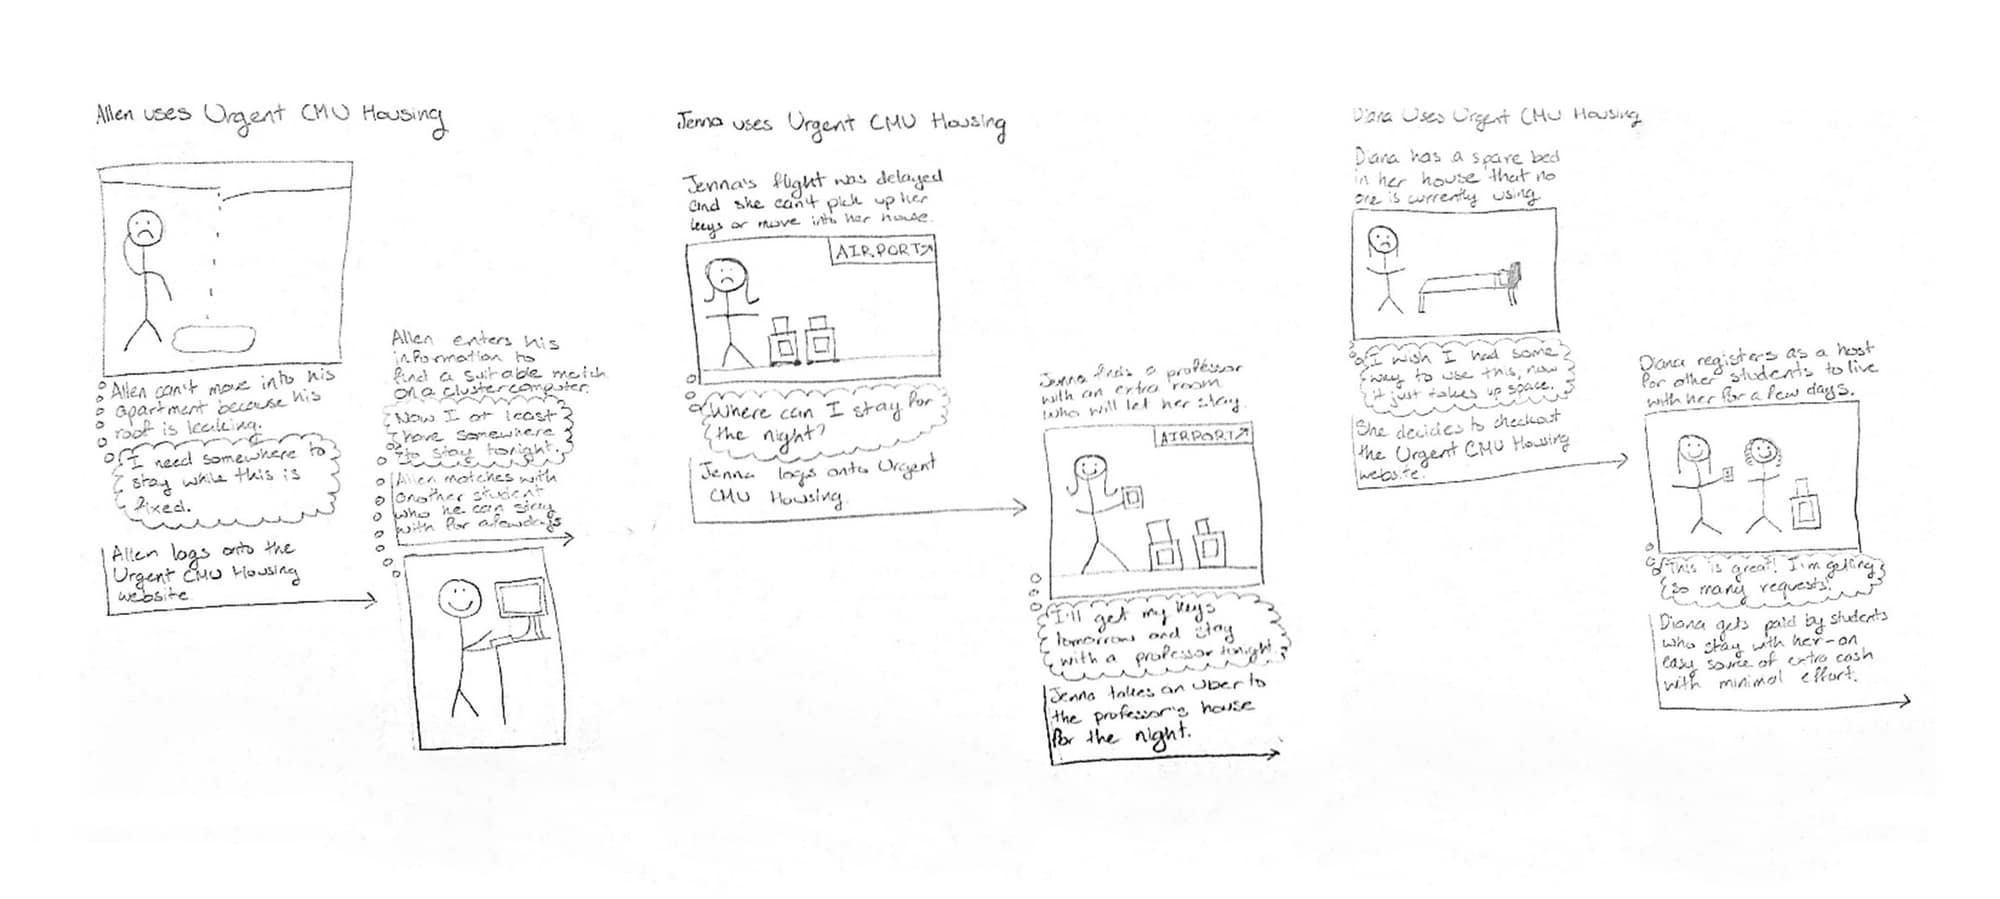 Allen uses Urgent CMU Housing
Allen can't move into his
apartment because his
roof is leaking.
I need somewhere to
stay while this is
fixed.
Allen logs onto the
Urgent CMU Housing
website
Allen enters his
information to
find a suitable match
on a cluster computer.
Now I at least
have somewhere
to stay tonight.
Allen matches with
another student
who he can stay
with for a few days
Jenna uses Urgent CMU Housing
Jenna's flight was delayed
and she can't pick up her
keys or move into her house.
AIRPORT
Where can I stay for
the night?
Jenna logs onto Urgent
CMU Housing.
Jenna finds a professor
with an extra room
who will let her stay.
AIRPORT
I'll get my keys
tomorrow and stay
with a professor tonight.
Jenna takes an Uber to
the professor's house
for the night.
Diana Uses Urgent CMU Housing
Diana has a spare bed
in her house that no
one is currently using
I wish I had some
way to use this, now
it just takes up space.
She decides to checkout
the Urgent CMU Housing
website.
Diana registers as a host
for other students to live
with her for a few days.
This is great! I'm getting
so many requests!
Diana gets paid by students
who stay with her-an
easy source of extra cash
with minimal effort.